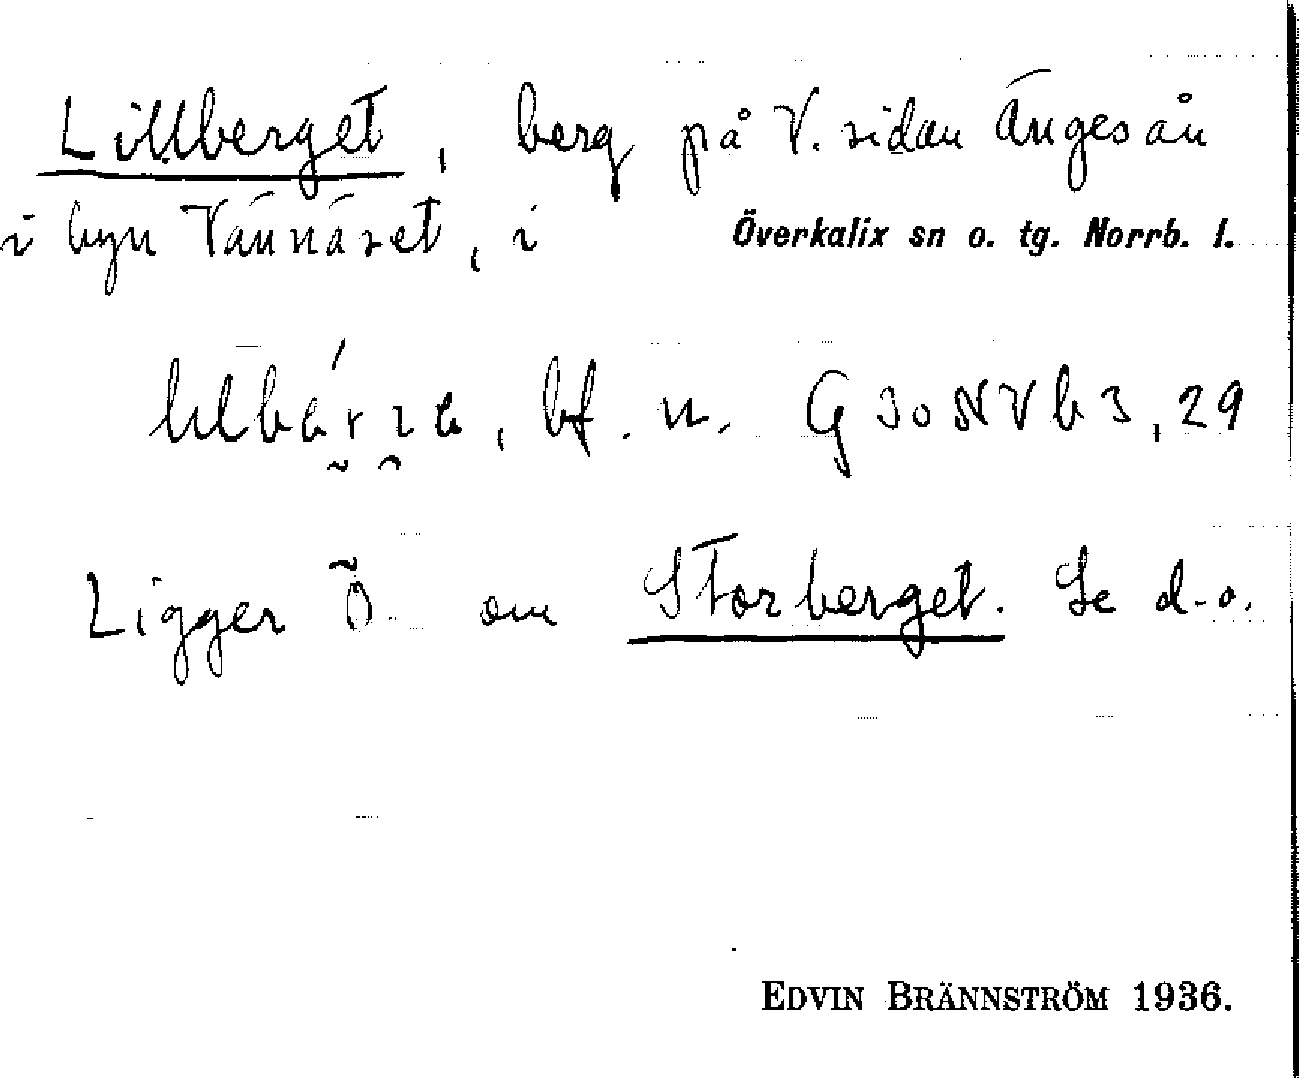 Lillberget, berg på V. sidan Ängesån
i byn Vännäset, i Överkalix sn o. tg. Norrb. l.
bf. n. G 30 NV b 3, 29
Ligger Ö om Storberget. Se d.o.
EDVIN BRÄNNSTRÖM 1936.